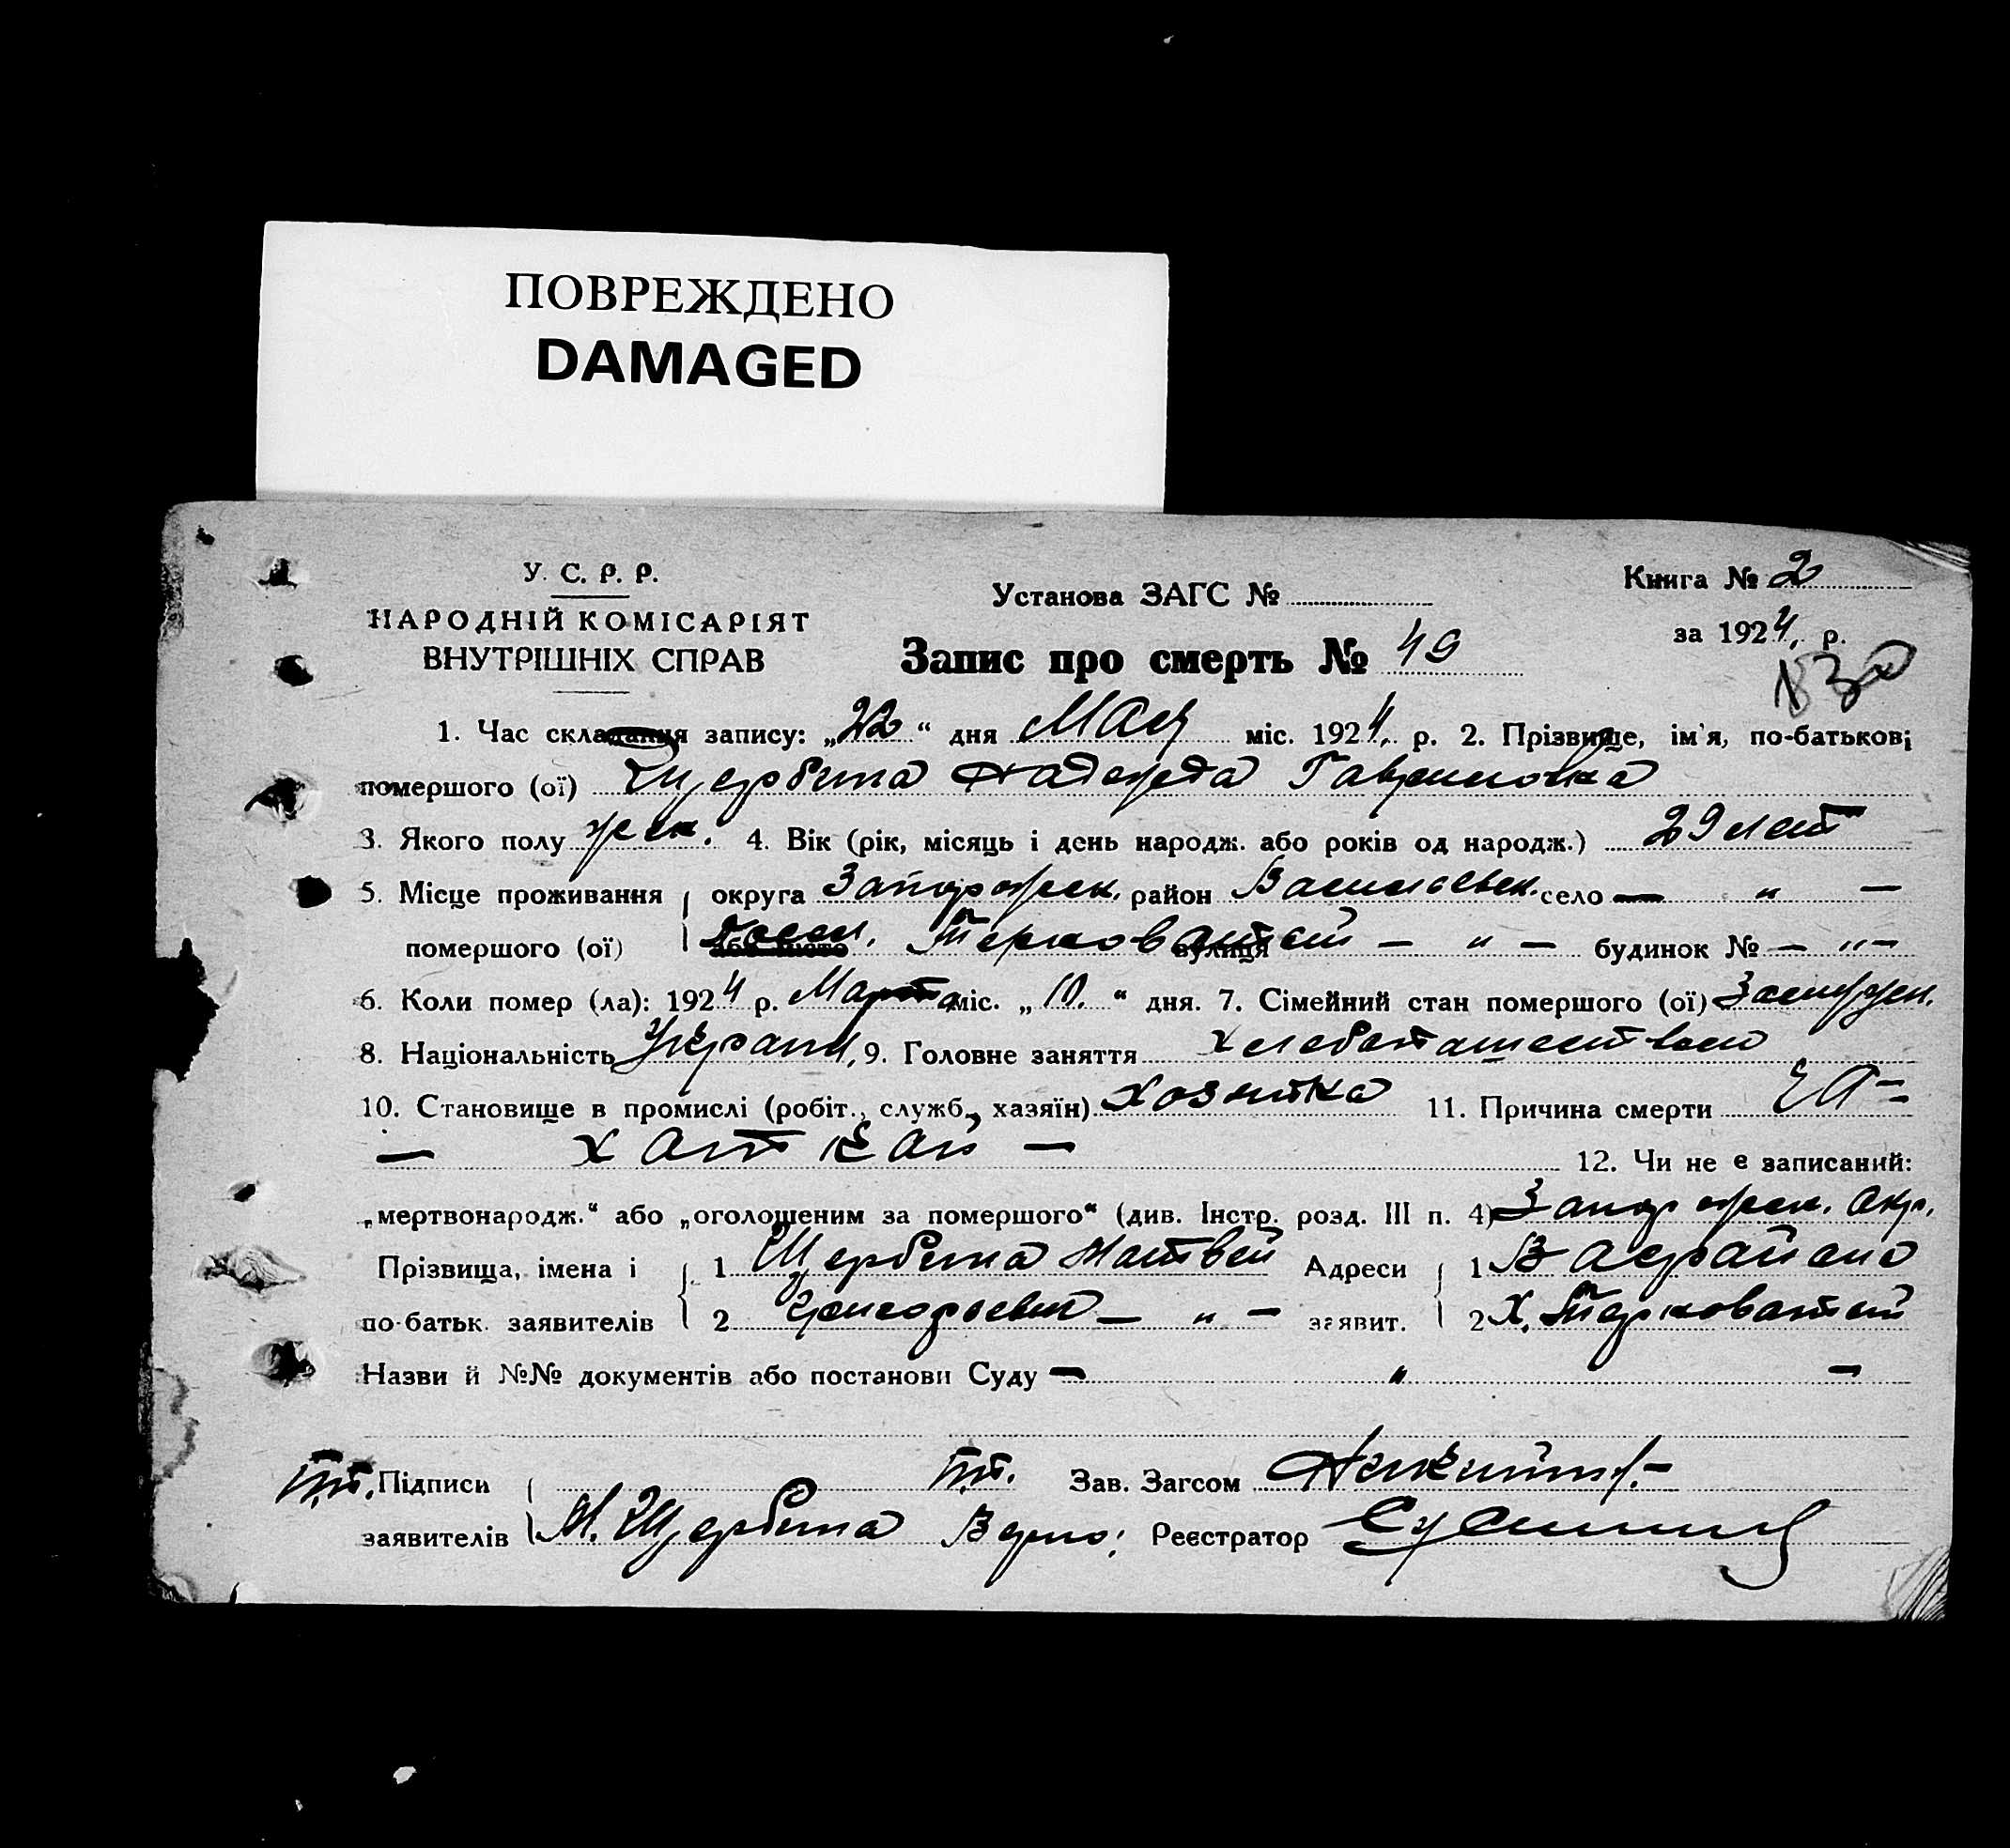 ПОВРЕЖДЕНО
DAMAGED
У. С. Р. Р.
НАРОДНІЙ КОМІСАРІЯТ
ВНУТРІШНІХ СПРАВ
Установа ЗАГС №
Запис про смерть № 49
Книга № 2
за 1924 р.
1. Час складання запису: „22“ дня Мая міс. 1924 р. 2. Прізвище, ім'я, по-батькові
помершого (ої) Щербина Надежда Гавриловна
3. Якого полу жен. 4. Вік (рік, місяць і день народж. або років од народж.) 29 лет
5. Місце проживання округа Запорожск. район Васильевск. село — " —
помершого (ої) або місто Терноватый вулиця — " — будинок № — " —
6. Коли помер (ла): 1924 р. Марта міс. „10.“ дня. 7. Сімейний стан помершого (ої) Замужем.
8. Національність Украин. 9. Головне заняття хлебопашеством
10. Становище в промислі (робіт., служб., хазяїн) хозяйка 11. Причина смерти
— —
12. Чи не є записаний:
„мертвонародж.“ або „оголошеним за помершого“ (див. Інстр. розд. III п. 4) Запорожск. Окр.
Прізвища, імена і 1 Щербина Матвей Адреси 1 В района
по-батьк. заявителів 2 Григорьевич — " — заявит. 2 Х. Терноватый
Назви й №№ документів або постанови Суду — " —
Підписи Зав. Загсом
заявителів М. Щербина Верно: Реєстратор